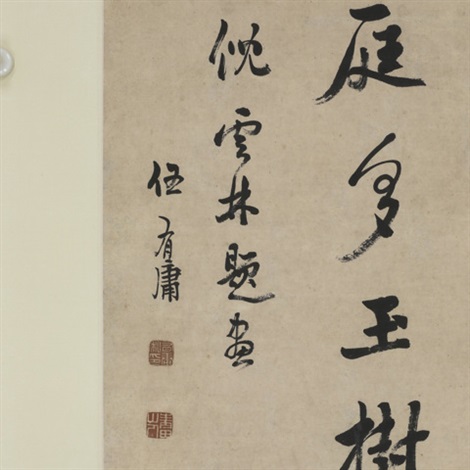 庭多玉樹
倪雲林題畫
伍有庸